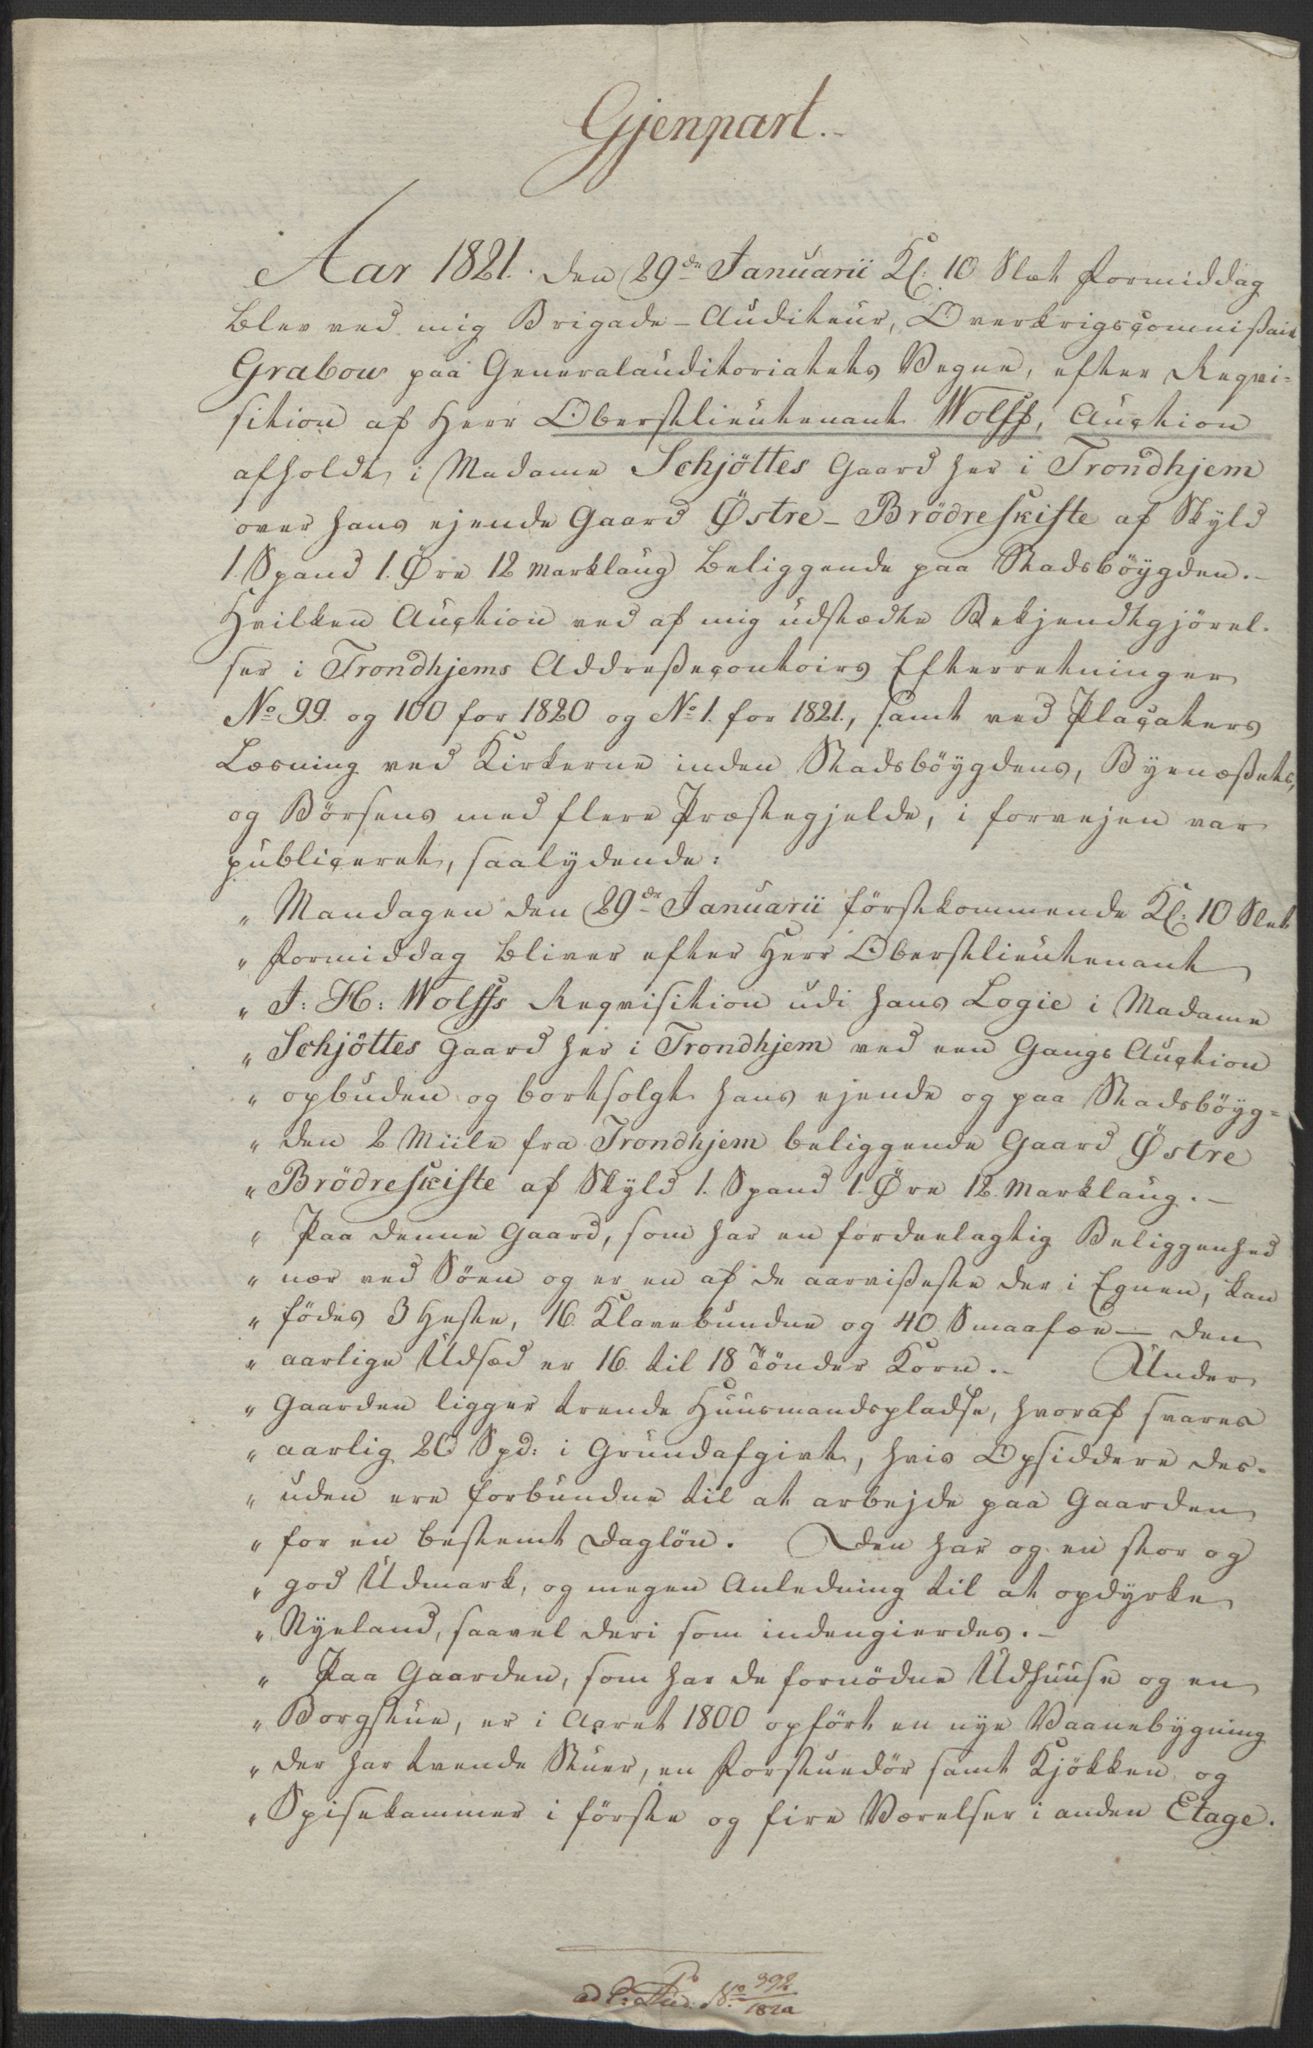 Gjenpart.
Aar 1821. den 29de Januarii Kl: 10 Slet Formiddag
blev ved mig Brigade-Auditeur, Overkrigscommißair
Grabow paa Generalauditoriatets Vegne, efter Reqvi-
sition af Herr Oberstlieutenant Wolff, Auction
afholdt i Madame Schjöttes Gaard her i Trondhjem
over hans ejende Gaard Østre-Brödreskifte af Skyld
1. Spand 1. Øre 12 Marklaug beliggende paa Stadsböygden.-
Hvilken Auction ved af mig udstædte Bekjendtgjörel-
ser i Trondhjems Addreßecontoirs Efterretninger
No 99. og 100 for 1820 og No 1. for 1821, samt ved Placaters
Læsning ved Kirkerne inden Stadsböygdens, Byenæßets,
og Börsens med flere Præstegjelde, i forvejen var
publiceret, saalydende:
" Mandagen den 29de Januarii förstkommende Kl: 10 Slet
" Formiddag bliver efter Herr Oberstlieutenant
" J: H: Wolffs Reqvisition udi hans Logie i Madame
" Schjöttes Gaard her i Trondhjem ved een Gangs Auction
" opbuden og bortsolgt hans ejende og paa Stadsböyg-
" den 2 Miile fra Trondhjem beliggende Gaard Østre
" Brödreskifte af Skyld 1. Spand 1. Øre 12. Marklaug.-
" Paa denne Gaard, som har en fordeelagtig Beliggenhed
" nær ved Söen og er en af de aarvißeste der i Egnen, kan
" födes 3 Heste, 16 Klavebundne og 40 Smaafæe - den
" aarlige Udsæd er 16 til 18 Tönder Korn.- Under
" Gaarden ligger trende Huusmandspladse, hvoraf svares
" aarlig 20 Spd: i Grundafgivt, hvis Opsiddere des-
" uden ere forbundne til at arbejde paa Gaarden
" for en bestemt Daglön. Den har og en stor og
" god Udmark, og megen Anledning til at opdyrke
" Nyeland, saavel deri som indengierdes.-
" Paa Gaarden, som har de fornödne Udhuuse og en
" Borgstue, er i Aaret 1800 opfört en nye Vaanebygning
" der har tvende Stuer, en Forstuedör samt Kjökken og
" Spisekammer i förste og fire Værelser i anden Etage.
ad No 392/182